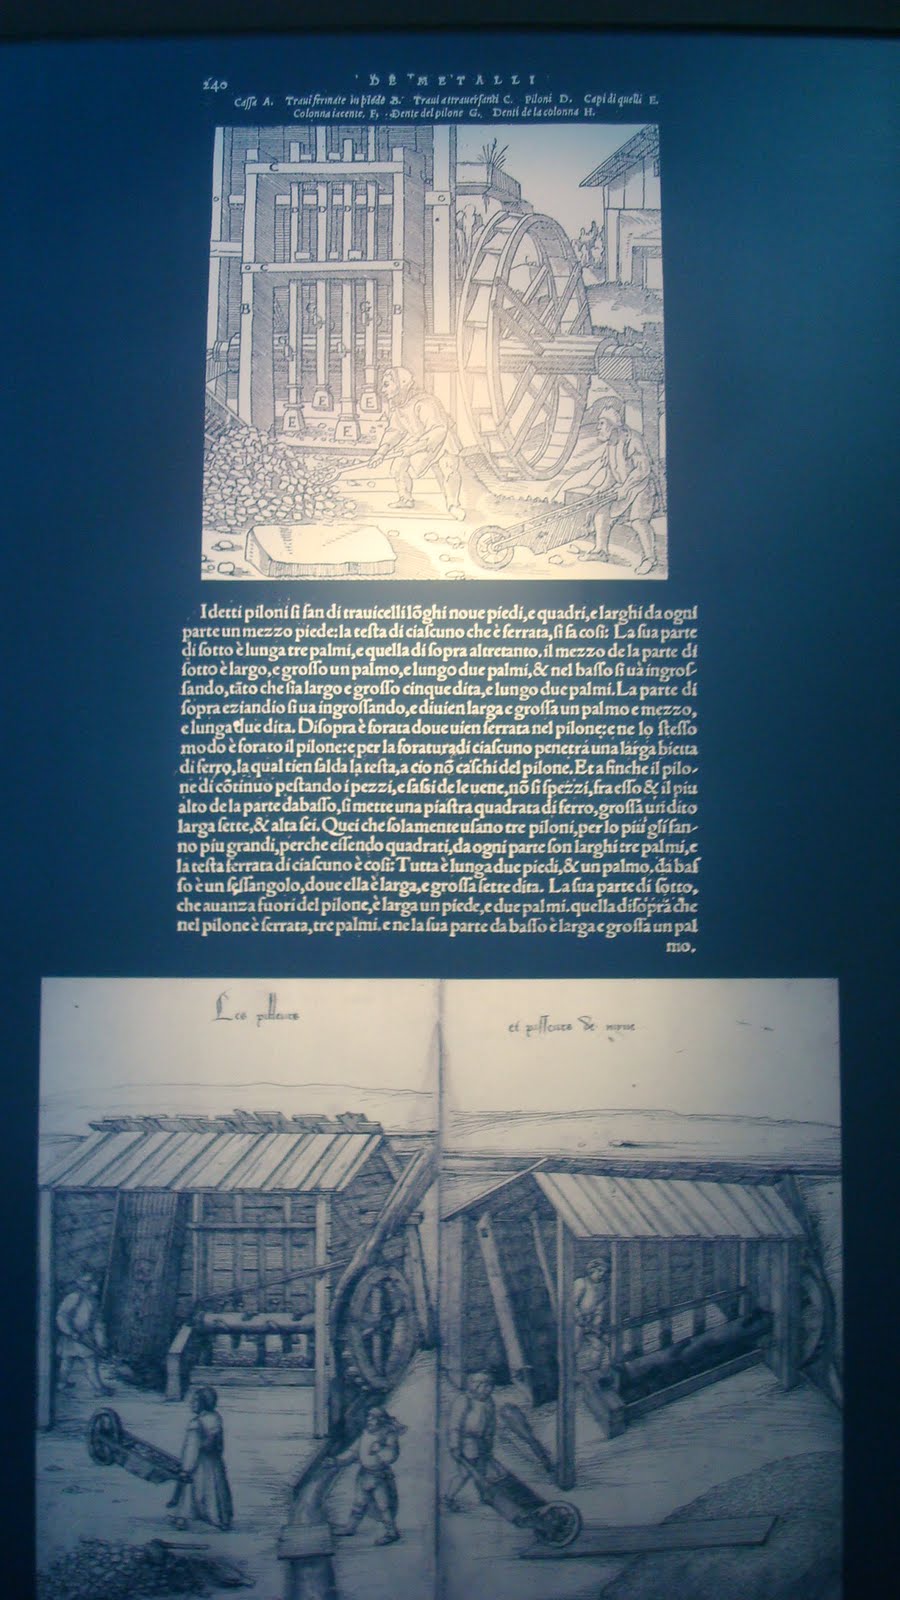 240
DE METALLI
Cassa A. Traui fermate in piedo B. Traui atrauerſanti C. Piloni D. Capi di quelli E.
Colonna iacente. F. Dente del pilone G. Denti de la colonna H.
C
C
B
B
G
G
F
E
E
E
E
I detti piloni ſi fan di trauicelli lõghi noue piedi, e quadri, e larghi da ogni
parte un mezzo piede: la teſta di ciaſcuno che è ferrata, ſi fa coſi: La ſua parte
di ſotto è lunga tre palmi, e quella di ſopra altretanto. il mezzo de la parte di
ſotto è largo, e groſſo un palmo, e lungo due palmi, & nel baſſo ſi uà ingroſ-
ſando, tãto che ſia largo e groſſo cinque dita, e lungo due palmi. La parte di
ſopra eziandio ſi ua ingroſſando, e diuien larga e groſſa un palmo e mezzo,
e lunga due dita. Diſopra è forata doue uien ferrata nel pilone: e ne lo ſteſſo
modo è forato il pilone: e per la foratura di ciaſcuno penetra una larga bietta
di ferro, la qual tien ſalda la teſta, a cio nõ caſchi del pilone. Et a finche il pilo-
ne di cõtinuo peſtando i pezzi, e ſaſsi de le uene, nõ ſi ſpezzi, fra eſſo & il piu
alto de la parte dabaſſo, ſi mette una piaſtra quadrata di ferro, groſſa un dito
larga ſette, & alta ſei. Quei che ſolamente uſano tre piloni, per lo piu gli fan-
no piu grandi, perche eſſendo quadrati, da ogni parte ſon larghi tre palmi, e
la teſta ferrata di ciaſcuno è coſi: Tutta è lunga due piedi, & un palmo, da baſ
ſo è un ſeſſangolo, doue ella è larga, e groſſa ſette dita. La ſua parte di ſotto,
che auanza fuori del pilone, è larga un piede, e due palmi. quella diſopra che
nel pilone è ferrata, tre palmi. e ne la ſua parte da baſſo è larga e groſſa un pal
mo.
Les pilleurs
et paſſeurs de myne